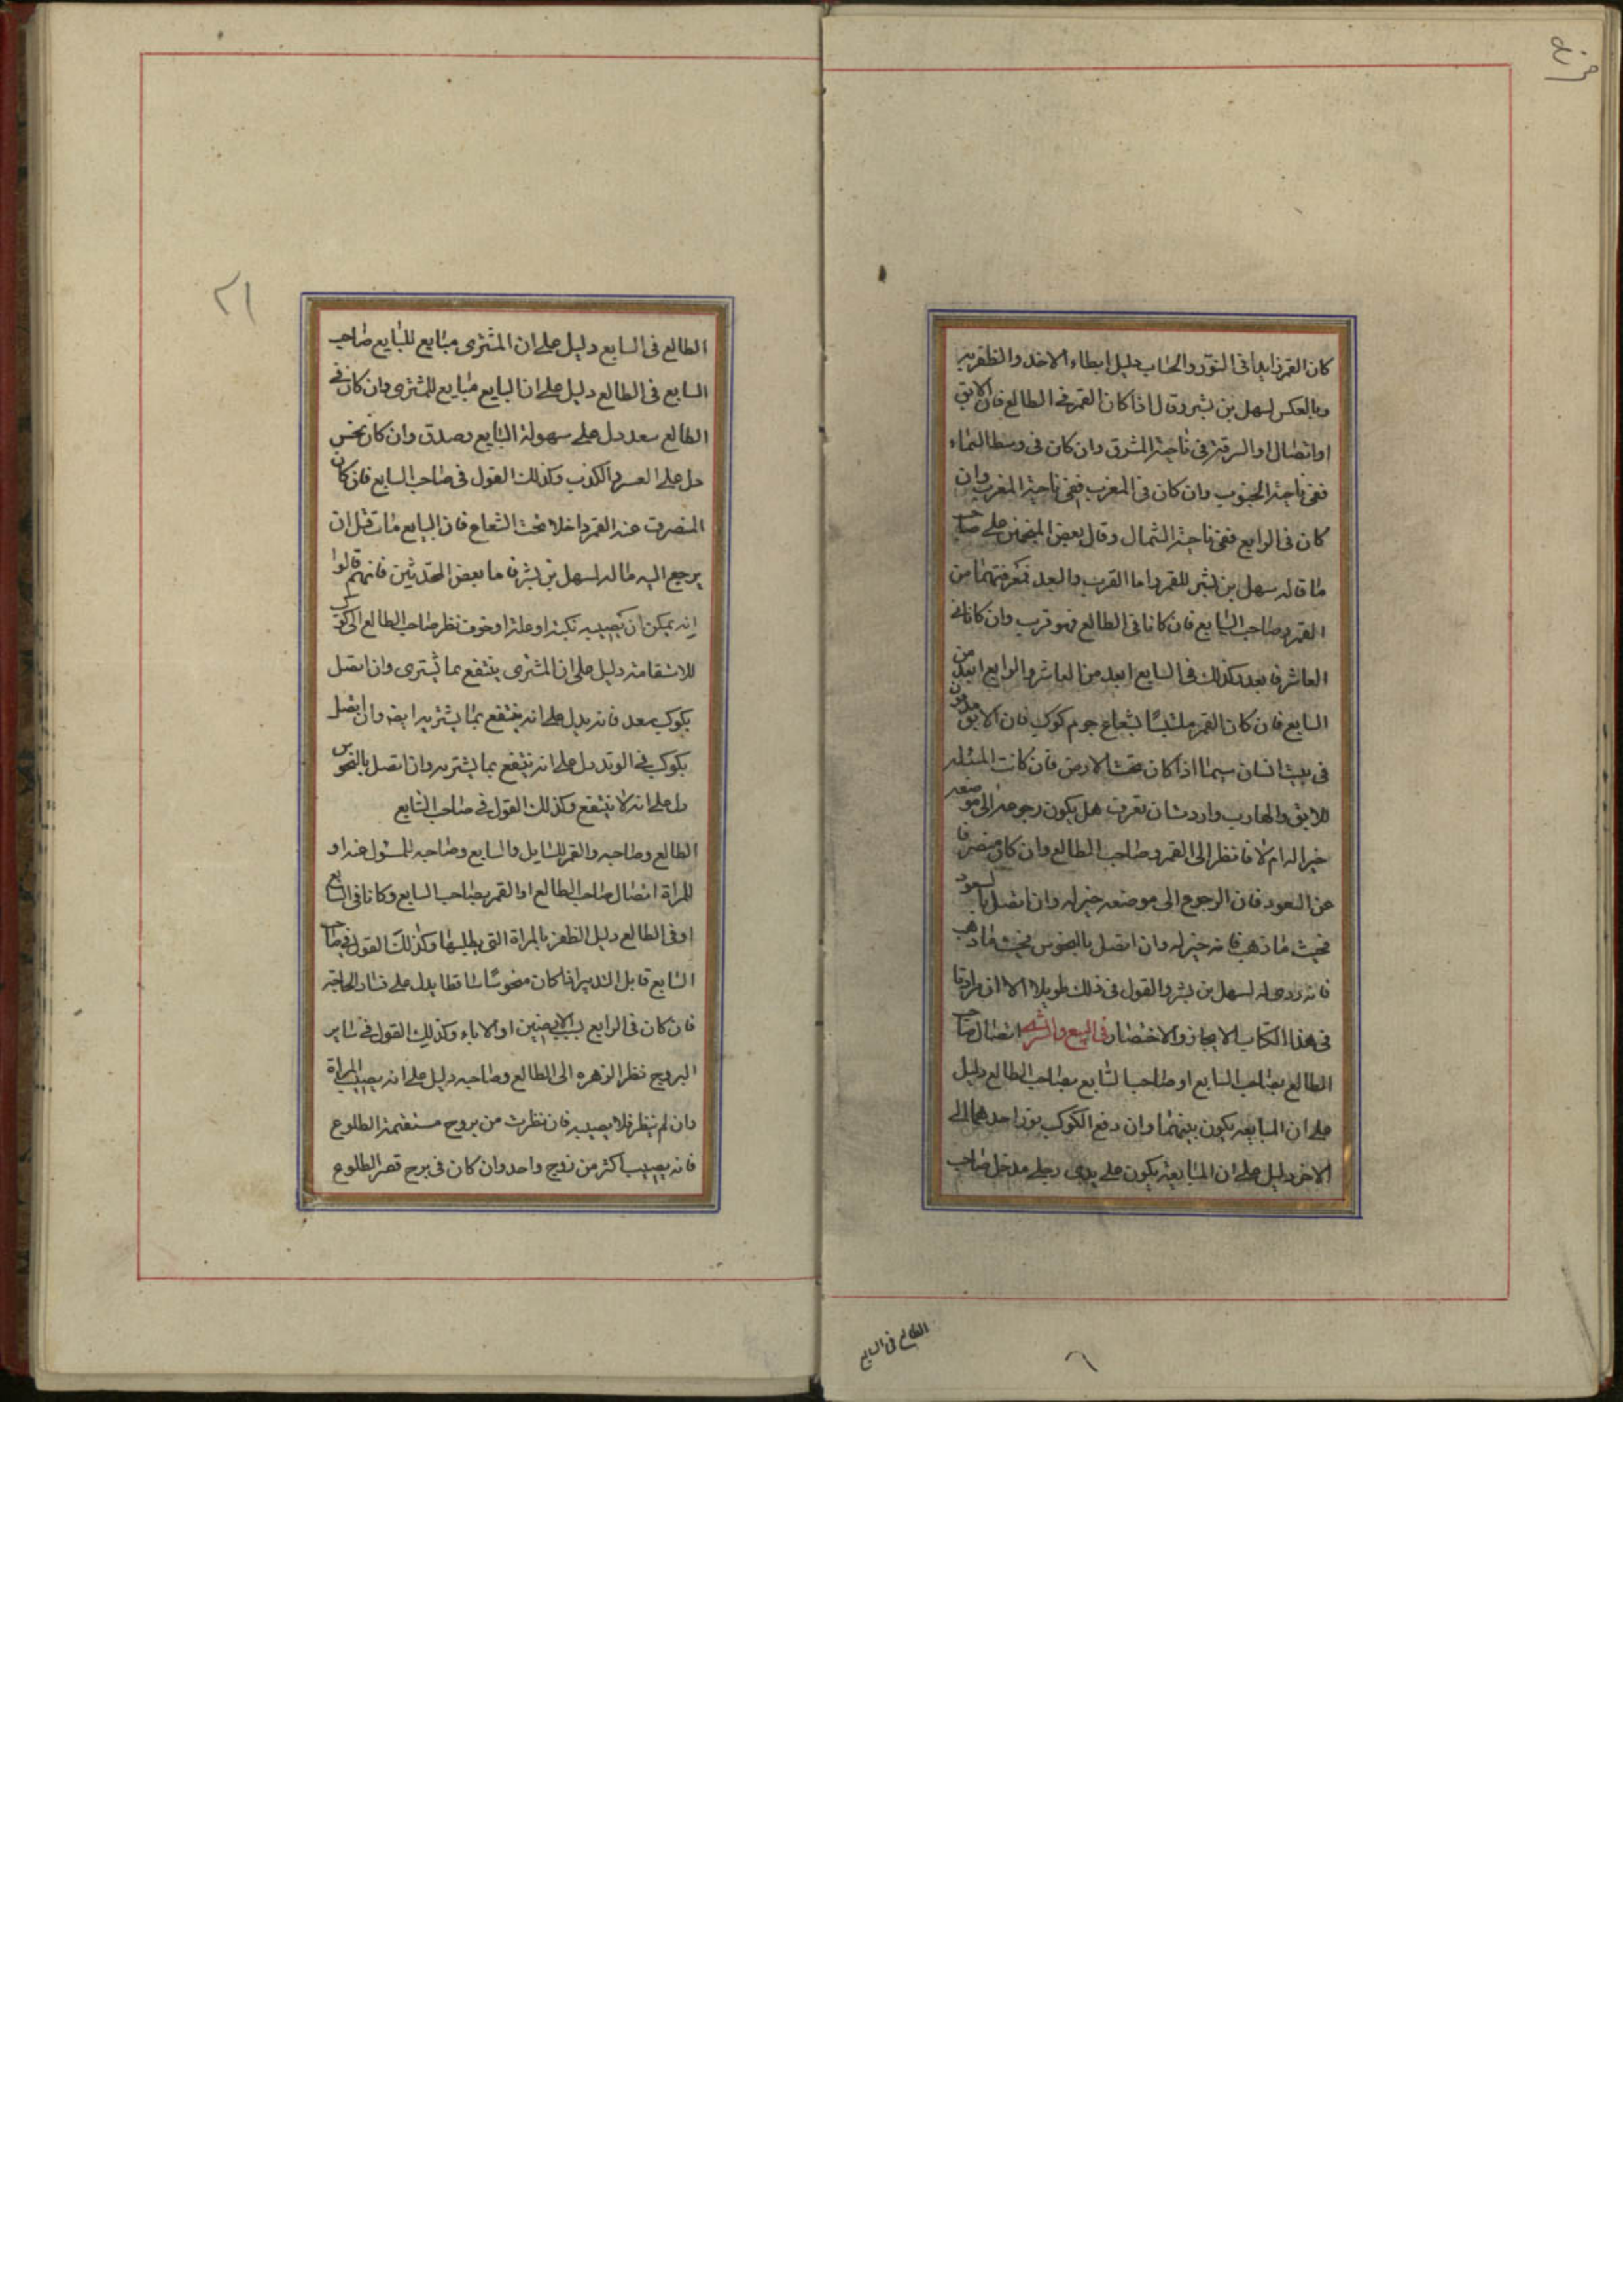 كان القمر زايدا فى النور والحساب دليل ابطاء الاخذ والظفر به
وبالعكس لسهل بن بشر وقال اذا كان القمر فى الطالع فان الابق
او الضال او السرقة فى ناحية المشرق وان كان فى وسط السماء
ففى ناحية الجنوب وان كان فى المغرب ففى ناحية المغرب وان
كان فى الرابع ففى ناحية الشمال وقال بعض المنجمين على صاحب
ما قاله سهل بن بشر للقمر واما القرب والبعد فمعرفتهما من
القمر وصاحب السابع فان كانا فى الطالع فهو قريب وان كانا فى
العاشر فابعد وكذلك فى السابع ابعد من العاشر والرابع ابعد من
السابع فان كان القمر ملتبسا بشعاع جرم كوكب فان الابق
فى بيت انسان سيما اذا كان تحت الارض فان كانت المسئلة
للابق والهارب واردت ان تعرف هل يكون رجوعه الى موضعه
خير اله ام لا فانظر الى القمر وصاحب الطالع وان كان منصرفا
عن السعود فان الرجوع الى موضعه خير له وان اتصل بالسعود
فحيث ما ذهب فانه خير له وان اتصل بالنحوس فحيث ما ذهب
فانه ردى له لسهل بن بشر والقول فى ذلك طويلا الا ان
فى هذا الكتاب الايجاز والاختصار فى البيع والشرى اتصال صاحب
الطالع بصاحب السابع او صاحب السابع بصاحب الطالع دليل
على ان المبايعه يكون بينهما وان دفع الكوكب نور احدهما الى
الاخر دليل على ان المبايعة يكون على يدى رجل مدخل صاحب
الطالع فى السابع
٢١
الطالع فى السابع دليل على ان المشترى مبايع للبايع صاحب
السابع فى الطالع دليل على ان البايع مبايع للمشترى وان كان فى
الطالع سعد دل على سهولة البايع وصدق وان كان نحس
دل على العسر والكذب وكذلك القول فى صاحب السابع فان كان
المنصرف عنه القمر داخلا تحت الشعاع فان البايع مات قبل ان
يرجع اليه ماله لسهل بن بشر فاما بعض المحدثين فانهم قالوا
انه يمكن ان يصيبه نكبة او علة او خوف نظر صاحب الطالع الى كوكب
للاستقامة دليل على ان المشترى ينتفع بما يشترى وان اتصل
بكوكب سعد فانه يدل على انه ينتفع بما يشتريه ايضا وان اتصل
بكوكب فى الوتد دل على انه ينتفع بما يشتريه وان اتصل بالنحوس
دل على انه لا ينتفع وكذلك القول فى صاحب السابع
الطالع وصاحبه والقمر للسايل والسابع وصاحبه للمسئول عنه او
للمراة اتصال صاحب الطالع او القمر بصاحب السابع وكانا فى السابع
او فى الطالع دليل الظفر بالمراة التى يطلبها وكذلك القول فى صاحب
السابع قابل التدبير اذا كان منحوسا ساقطا يدل على فساد الحاجة
فان كان فى الرابع بسبب الارضين او الاباء وكذلك القول فى ساير
البروج نظر الزهره الى الطالع وصاحبه دليل على انه يصيب المراة
وان لم ينظر فلا يصيبه فان نظرت من بروج مستقيمة الطلوع
فانه يصيب اكثر من زوج واحد وان كان فى برج قصر الطلوع